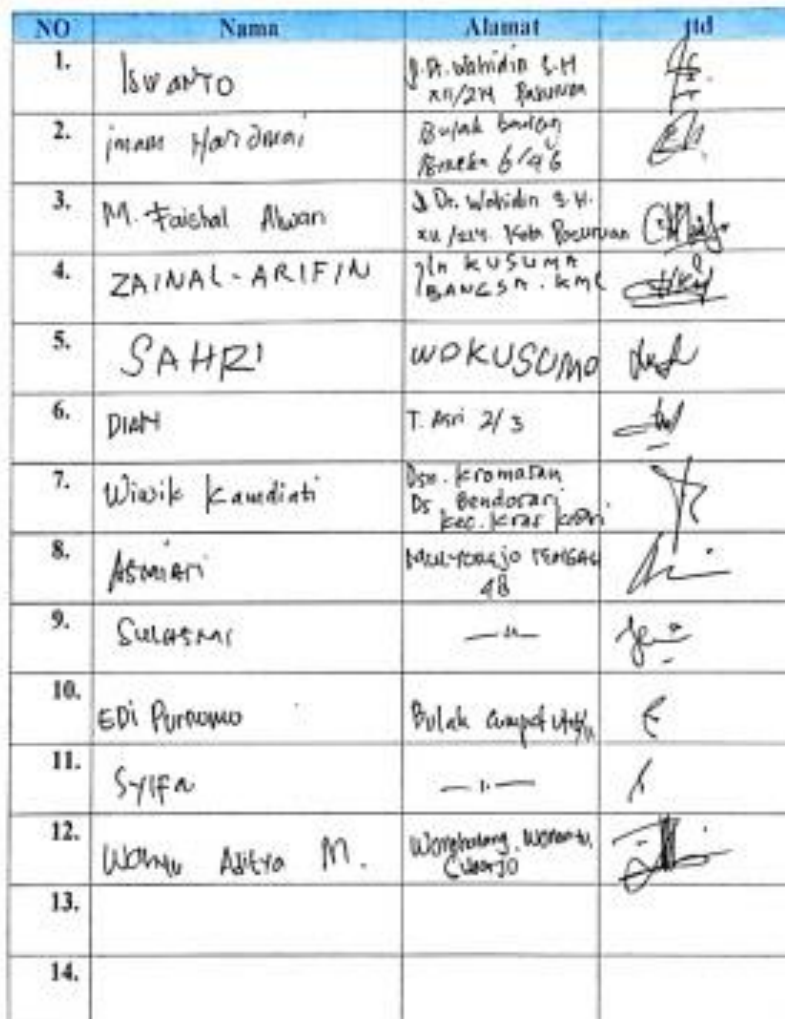 NO Nama Alamat ttd
1. ISWANTO Jl. Dr. Wahidin S.H
XII/214 Pasuruan
2. imam Bulak banteng
6/46
3. M. Faishal Alwan Jl Dr. Wahidin S.H.
XII/214. Kota Pasuruan
4. ZAINAL-ARIFIN Jln KUSUMA
BANGSA. KML
5. SAHRI WOKUSUMO
6. DIAH T. Asri 2/3
7. Wiwik Kamdiati Dsn. Kromasan
Ds Bendosari
kec. Kras Kediri
8. ASMIARI TENGAH
4B
9. SULASMI —〃—
10. EDi Purnomo Bulak cumpat
11. SYIFA —〃—
12. Aditya M.
13.
14.